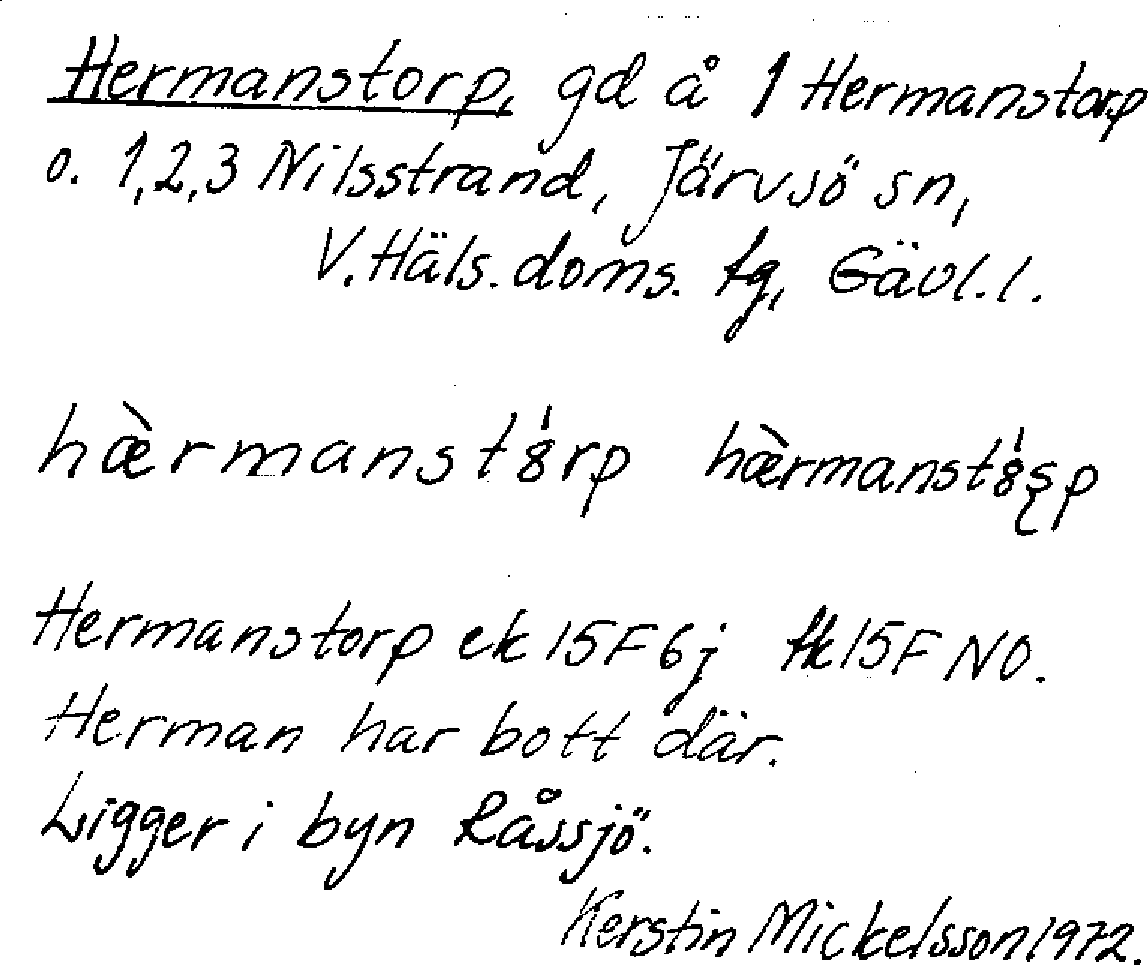 Hermanstorp, gd å 1 Hermanstorp
o. 1,2,3 Nilsstrand, Järvsö sn,
V. Häls. doms. tg, Gävl. l.
hæ̀rmanst8́rp hæ̀rmanst8́ʂp
Hermanstorp ek 15F6j tk 15F NO.
Herman har bott där.
Ligger i byn Råssjö.
Kerstin Mickelsson 1972.